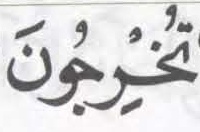 تُخْرِجُونَ